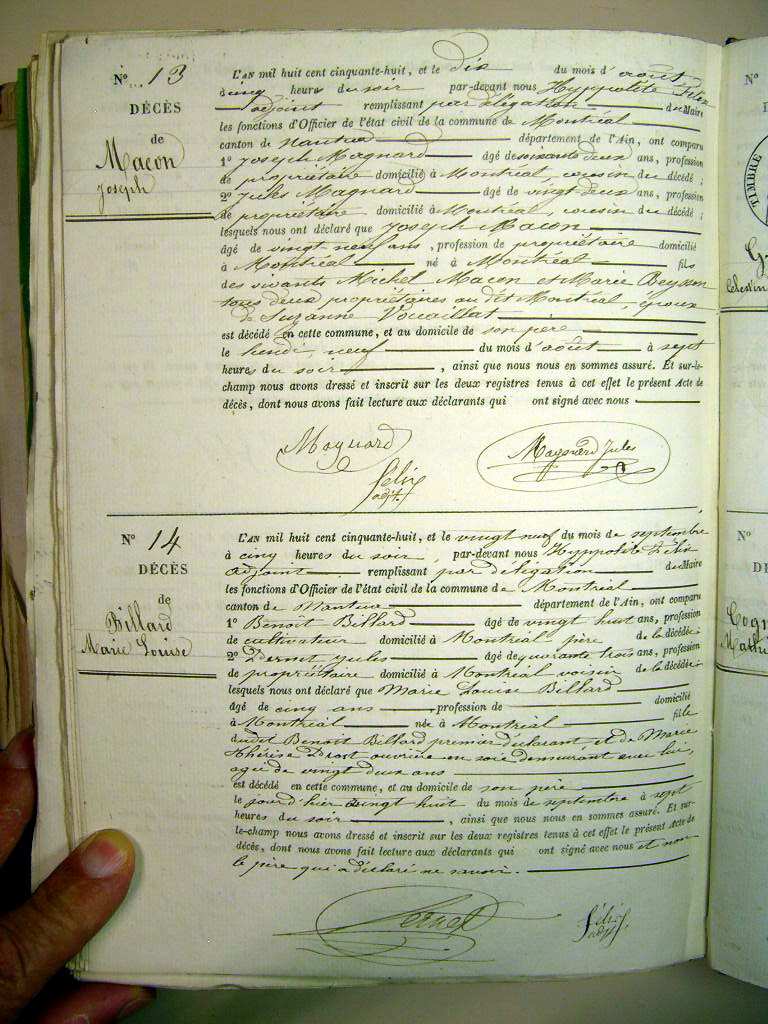 N° 13
DÉCÈS
de
Macon
Joseph
L'AN mil huit cent cinquante-huit, et le dix du mois d'août
à cinq heures du soir par-devant nous Hyppolite Félix
adjoint remplissant par délégation du Maire
les fonctions d'Officier de l'état civil de la commune de Montréal
canton de Nantua département de l'Ain, ont comparu
1° Joseph Magnard âgé de soixante deux ans, profession
de propriétaire domicilié à Montréal, cousin du décédé ;
2° Jules Magnard âgé de vingt deux ans, profession
de propriétaire domicilié à Montréal, cousin du décédé ;
lesquels nous ont déclaré que Joseph Macon
âgé de vingt neuf ans, profession de propriétaire domicilié
à Montréal né à Montréal fils
des vivants Michel Macon et Marie
tous deux propriétaires au dit Montréal, époux
de Suzanne Vouaillat
est décédé en cette commune, et au domicile de son père
le lundi, neuf du mois d'août à sept
heures du soir, ainsi que nous nous en sommes assuré. Et sur-le-
champ nous avons dressé et inscrit sur les deux registres tenus à cet effet le présent Acte de
décès, dont nous avons fait lecture aux déclarants qui ont signé avec nous
Magnard
Magnard Jules
Félix
adjt.
N° 14
DÉCÈS
de
Billard
Marie Louise
L'AN mil huit cent cinquante-huit, et le vingt neuf du mois de septembre
à cinq heures du soir, par-devant nous Hyppolite Félix
adjoint remplissant par délégation du Maire
les fonctions d'Officier de l'état civil de la commune de Montréal
canton de Nantua département de l'Ain, ont comparu
1° Benoit Billard âgé de vingt huit ans, profession
de cultivateur domicilié à Montréal père de la décédée
2° Jules âgé de quarante trois ans, profession
de propriétaire domicilié à Montréal voisin de la décédée
lesquels nous ont déclaré que Marie Louise Billard
âgé de cinq ans profession de domicilié
à Montréal née à Montréal fille
dudit Benoit Billard premier déclarant et de Marie
Thérèse ouvrière en soie demeurant avec lui,
agée de vingt deux ans
est décédé en cette commune, et au domicile de son père
le jourd'hier vingt huit du mois de septembre à sept
heures du soir, ainsi que nous nous en sommes assuré. Et sur-
le-champ nous avons dressé et inscrit sur les deux registres tenus à cet effet le présent Acte de
décès, dont nous avons fait lecture aux déclarants qui ont signé avec nous et non
le père qui a déclaré ne savoir.
Félix
adjt.
N°
TIMBRE
Célestin
N°